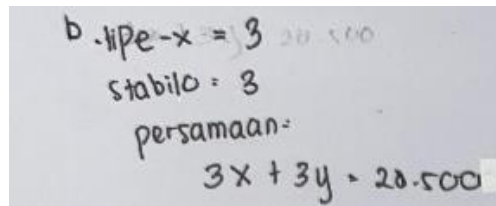 b. tipe-x = 3
stabilo = 3
persamaan =
3x + 3y = 20.500